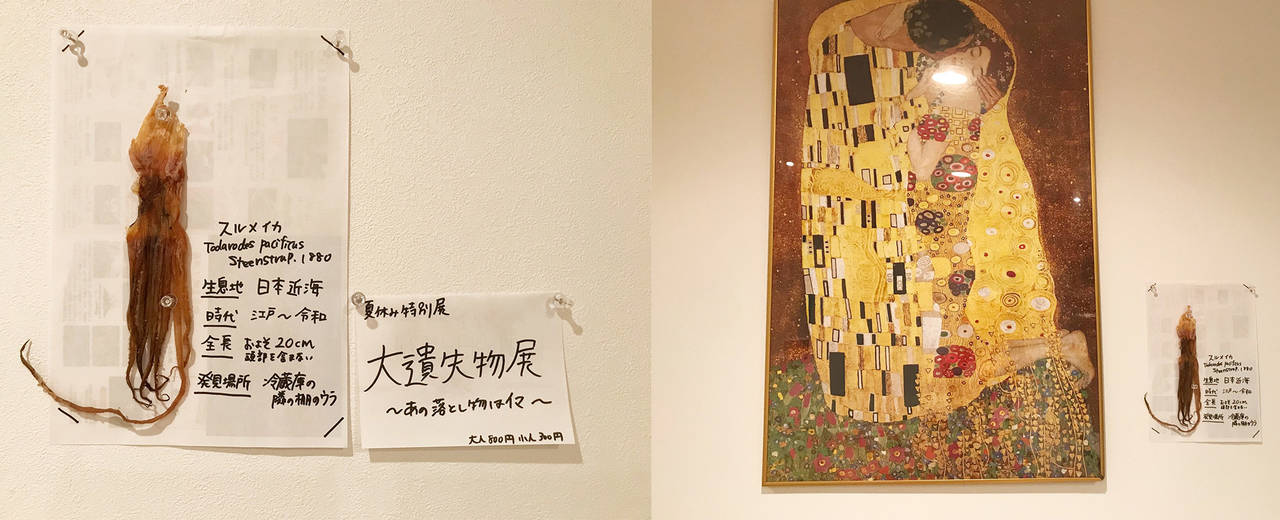 スルメイカ
Todarodes pacificus
Steenstrup. 1880
生息地 日本近海
時代 江戸〜令和
全長 およそ20cm
頭部を含まない
発見場所 冷蔵庫の
隣の棚のウラ
夏休み特別展
大遺失物展
〜あの落とし物はイマ〜
大人800円 小人300円
スルメイカ
Todarodes pacificus
Steenstrup. 1880
生息地 日本近海
時代 江戸〜令和
全長 およそ20cm
頭部を含まない
発見場所 冷蔵庫の
隣の棚のウラ